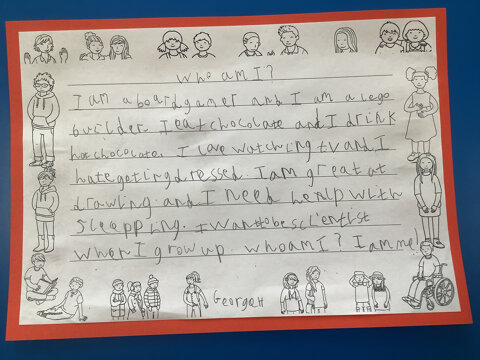 who am I?
I am a boardgamer and I am a lego
builder. I eat chocolate and I drink
hotchocolate. I love watching tv and I
hate getting dressed. I am great at
drawing. and I need henlp with
sleepping. I want to be scientist
when I grow up. who am I? I am me!
George H